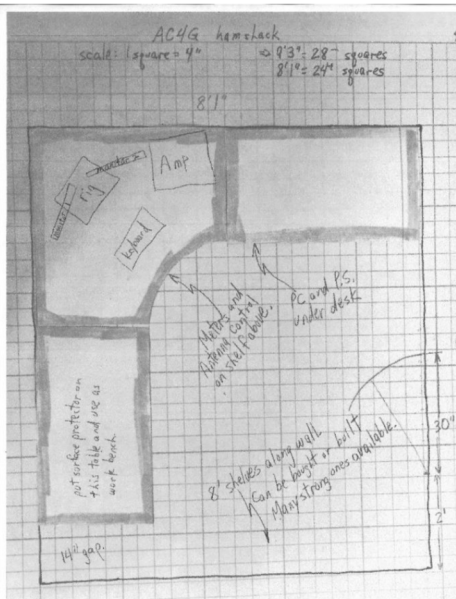 AC4G hamshack
scale: 1 square = 4"
⇒ 9'3" = 28⁻ squares
8'1" = 24⁺ squares
8'1"
monitor
Amp
monitor
rig
keyboard
Meters and
Antenna Control
on shelf above.
PC and P.S.
under desk
put surface protector on
this table and use as
work bench.
8' shelves along wall
Can be bought or built
Many strong ones available.
30"
2'
14" gap.